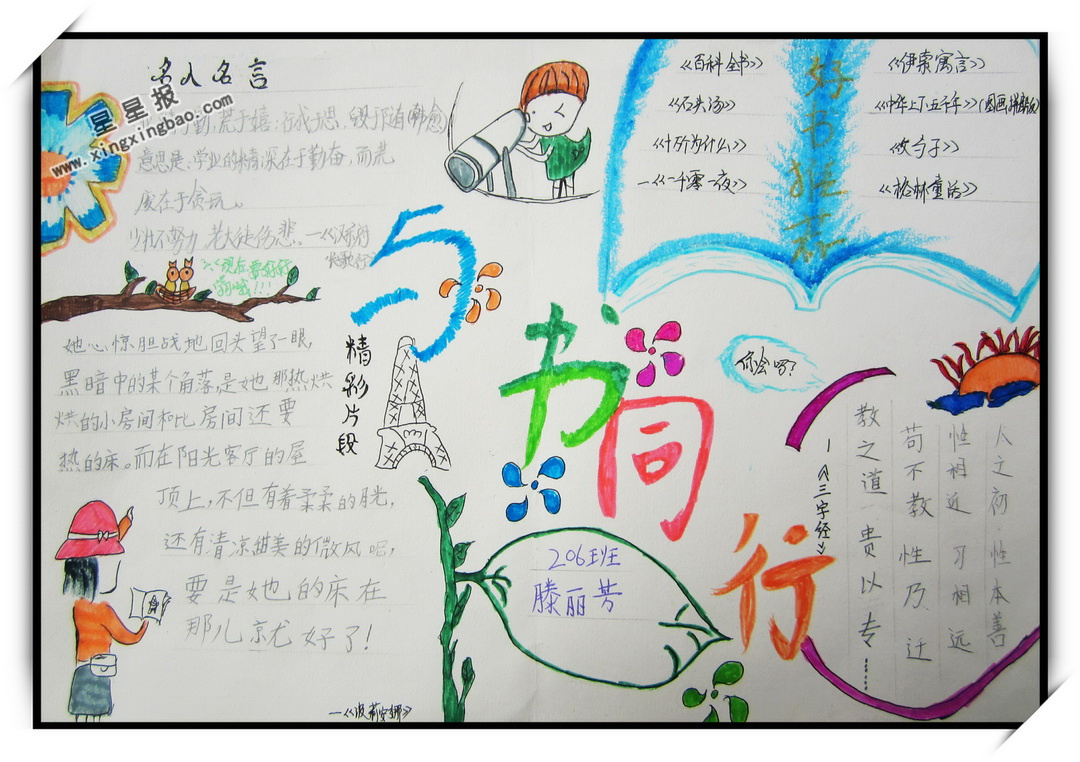 名人名言
星星报
www.xingxingbao.com
荒于嬉:行成于思,毁于随(韩愈)
意思是:学业的精深在于勤奋,而荒
废在于贪玩。
少壮不努力,老大徒伤悲。—《汉乐府
长歌行》
精彩片段
她心惊胆战地回头望了一眼,
黑暗中的某个角落是她那热烘
烘的小房间和比房间还要
热的床。而在阳光客厅的屋
顶上,不但有着柔柔的月光,
还有清凉甜美的微风呢,
要是她的床在
那儿就好了!
与书同行
206班
滕丽芳
好书推荐
《百科全书》
《石头汤》
《十万个为什么》
《一千零一夜》
《伊索寓言》
《中华上下五千年》
《坎勺子》
《格林童话》
你会吗?
人之初 性本善
性相近 习相远
苟不教 性乃迁
教之道 贵以专……
—《三字经》